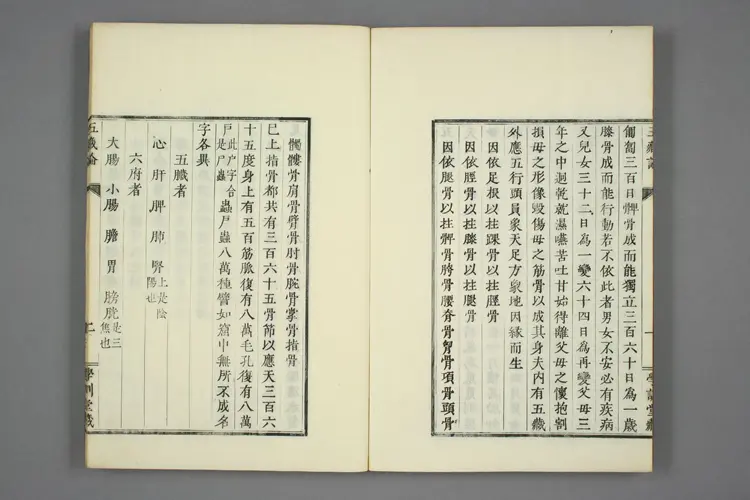 匍匐三百日髀骨成而能獨立三百六十日為一歲
膝骨成而能行動若不依此者男女不安必有疾病
又兒女三十二日為一變六十四日為再變父母三
年之中迴乾就濕嚥苦吐甘始得離父母之懷抱割
損母之形像毀傷母之筋骨以成其身夫內有五臟
外應五行頭員象天足方象地因緣而生
因依足根以拄踝骨以拄脛骨
因依脛骨以拄膝骨以拄腿骨
因依腿骨以拄髀骨胯骨腰脊骨胷骨項骨頭骨
髑髏骨肩骨臂骨肘骨腕骨掌骨指骨
巳上指骨都共有三百六十五骨節以應天三百六
十五度身上有五百筋脈復有八萬毛孔復有八萬
戶此户字合是尸蟲蟲戶蟲八萬種譬如窟中無所不成名
字各異
五臟者
心 肝 脾 肺 腎上是陰陽也
六府者
大腸 小腸 膽 胃 膀胱是三焦也
五臟論
學訓堂藏